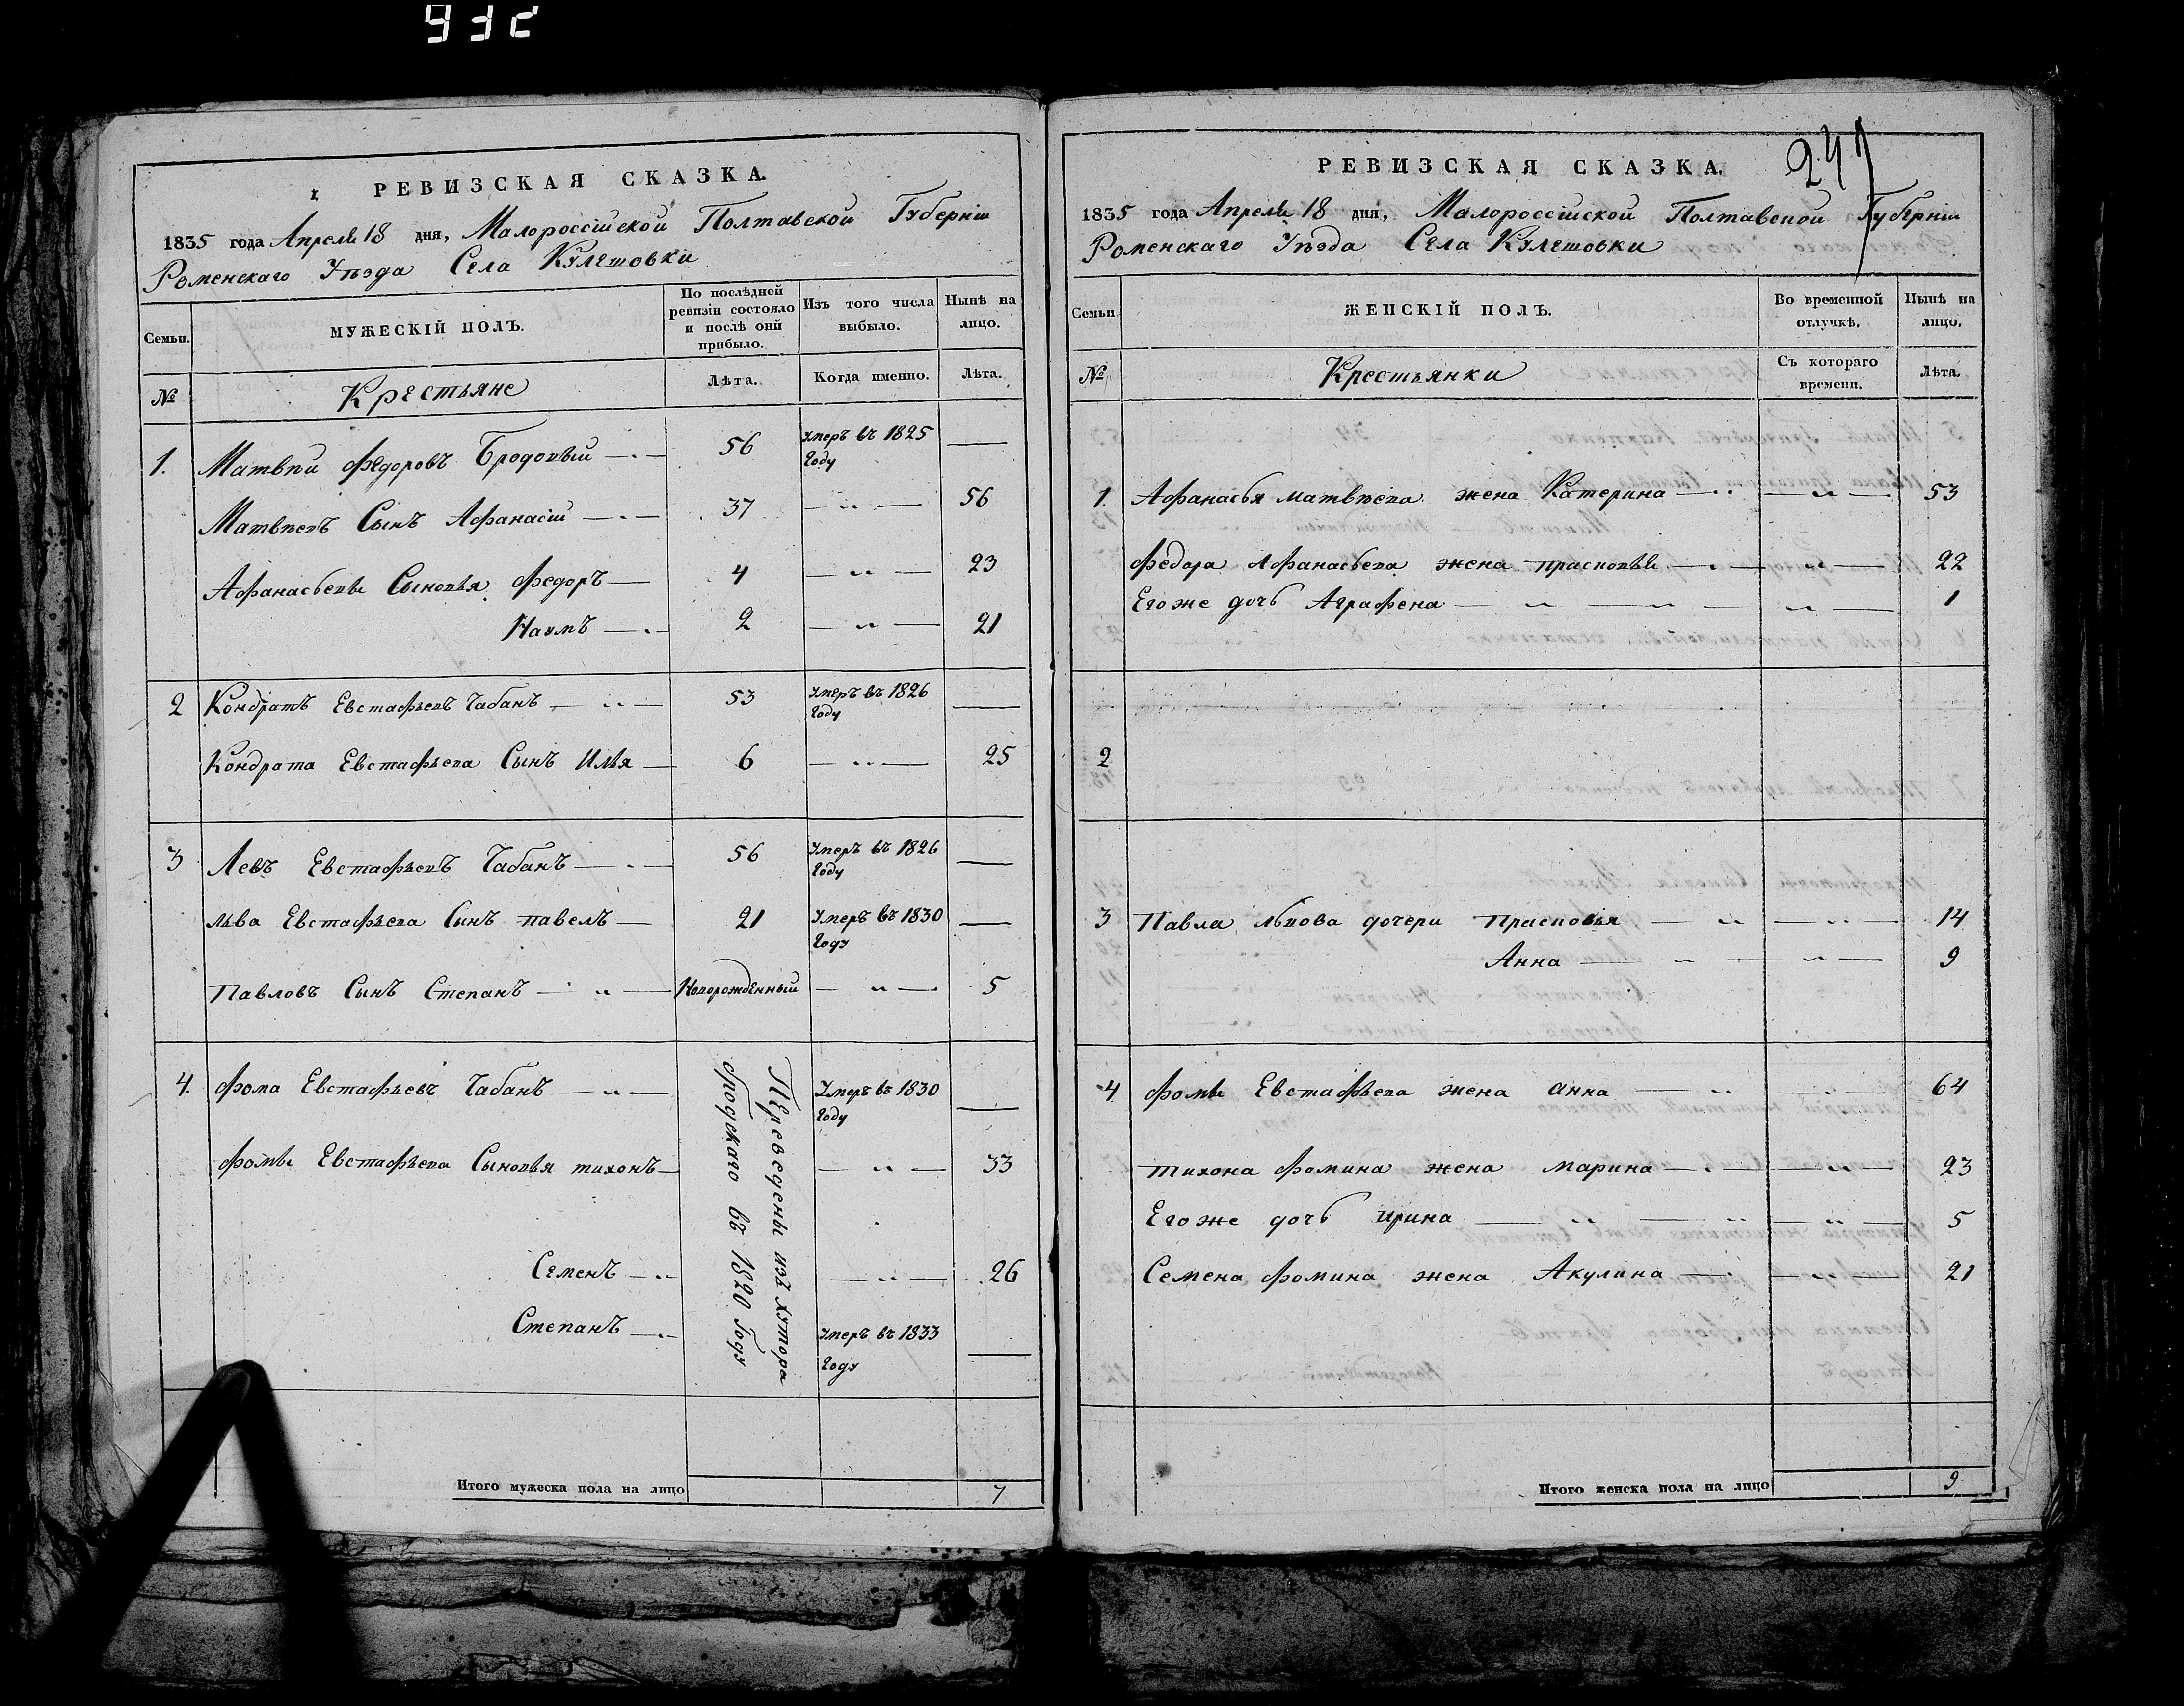 932
РЕВИЗСКАЯ СКАЗКА.
1835 года Апреля 18 дня, Малороссійской Полтавской Губерніи
Роменскаго Уѣзда Села Кулешовки
Семьи.
МУЖЕСКІЙ ПОЛЪ.
По послѣдней ревизіи состояло и послѣ оній прибыло.
Изъ того числа выбыло.
Нынѣ на лицо.
№
Крестьяне
Лѣта.
Когда именно.
Лѣта.
1. Матвѣй Федоровъ 56 умеръ въ 1825 Году —
Матвѣевъ Сынъ Афанасій 37 — " — 56
Афанасьевы Сыновья Федоръ 4 — " — 23
Наумъ 2 — " — 21
2 Кондратъ Евстафьевъ Чабанъ 53 умеръ въ 1826 Году —
Кондрата Евстафьева Сынъ Илья 6 — " — 25
3 Левъ Евстафьевъ Чабанъ 56 Умеръ въ 1826 Году —
Льва Евстафьева Сынъ павелъ 21 Умеръ въ 1830 Году —
Павловъ Сынъ Степанъ — " — Новорожденный — " — 5
4. Фома Евстафьевъ Чабанъ — " — Умеръ въ 1830 Году —
Фомы Евстафьева Сыновья тихонъ — " — 33
Семенъ — " — 26
Степанъ — умеръ въ 1833 Году —
Переведены изъ хутора
въ 1820 Году
Итого мужеска пола на лицо 7
247
РЕВИЗСКАЯ СКАЗКА.
1835 года Апреля 18 дня, Малороссійской Полтавской Губерніи
Роменскаго Уѣзда Села Кулешовки
Семьи.
ЖЕНСКІЙ ПОЛЪ.
Во временной отлучкѣ.
Нынѣ на лицо.
№
Крестьянки
Съ котораго времени.
Лѣта.
1. Афанасья матвѣева жена Катерина — " — 53
Федора Афанасьева жена прасковья — " — 22
Его же дочь Аграфена — " — 1
2
3 Павла Львова дочери Прасковья — " — 14
Анна — " — 9
4 Фомы Евстафьева жена анна — " — 64
тихона Фомина жена марина — " — 23
Его же дочь ирина — " — 5
Семена Фомина жена Акулина — " — 21
Итого женска пола на лицо 9